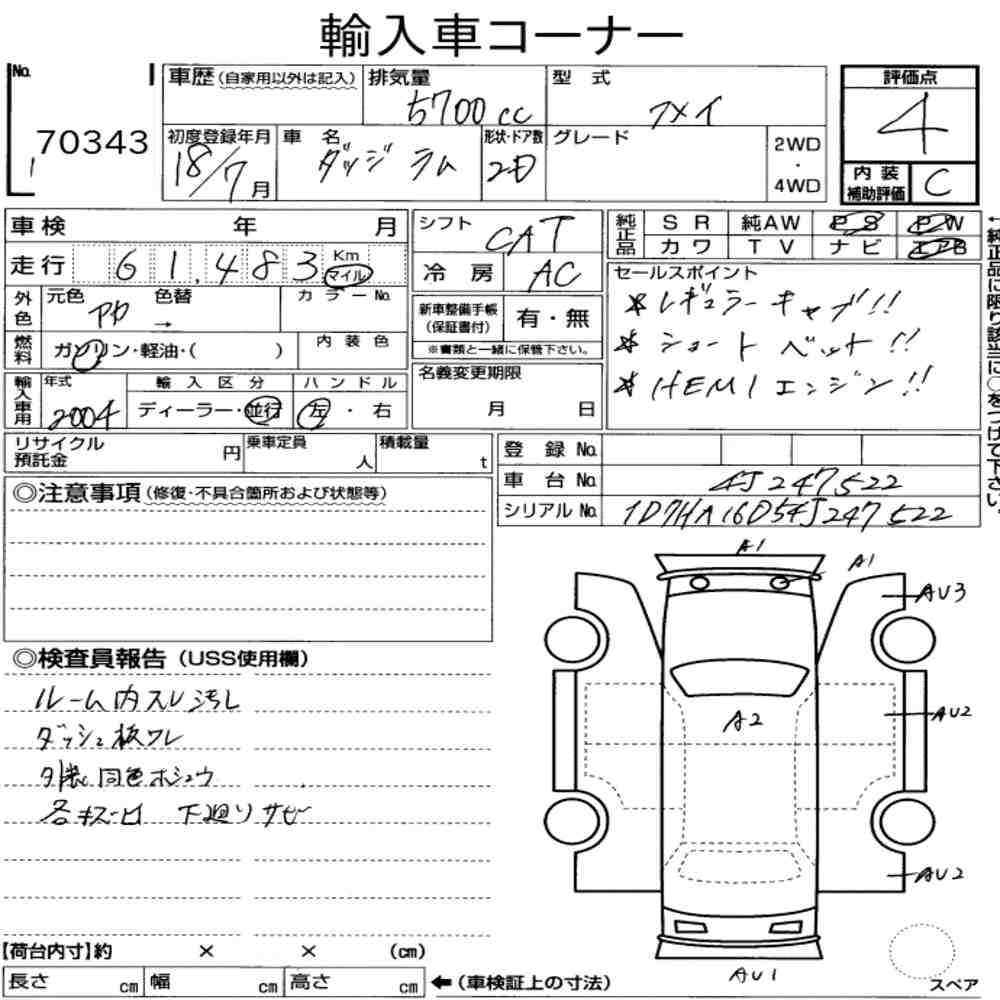 輸入車コーナー
No. 70343
車歴(自家用以外は記入) 排気量 5700cc 型式 フメイ 評価点 4
初度登録年月 18/7月 車名 ダッジ ラム 形状・ドア数 2D グレード 2WD・4WD 内装補助評価 C
車検 年 月 シフト CAT 純正品 SR 純AW PS PW
走行 61,483 Km マイル 冷房 AC カワ TV ナビ エアB
外色 元色 アカ 色替 → カラーNo. 新車整備手帳(保証書付) 有・無
燃料 ガソリン・軽油・( ) 内装色 ※書類と一緒に保管下さい。
輸入車用 年式 2004 輸入区分 ディーラー・並行 ハンドル 左・右 名義変更期限 月 日
セールスポイント
*レギュラーキャブ!!
*ショートベット!!
*HEMIエンジン!!
←純正品に限り該当に○をつけて下さい。
リサイクル預託金 円 乗車定員 人 積載量 t 登録No.
車台No. 4J247522
シリアルNo. 1D7HA16D54J247522
◎注意事項(修復・不具合箇所および状態等)
◎検査員報告(USS使用欄)
ルーム内スレ汚レ
ダッシュ板ワレ
外装同色ホシュウ
各キズ凹 下廻リサビ
A1
A1
AU3
A2
AU2
AU2
AU1
スペア
【荷台内寸】約 × × (cm)
長さ cm 幅 cm 高さ cm ←(車検証上の寸法)